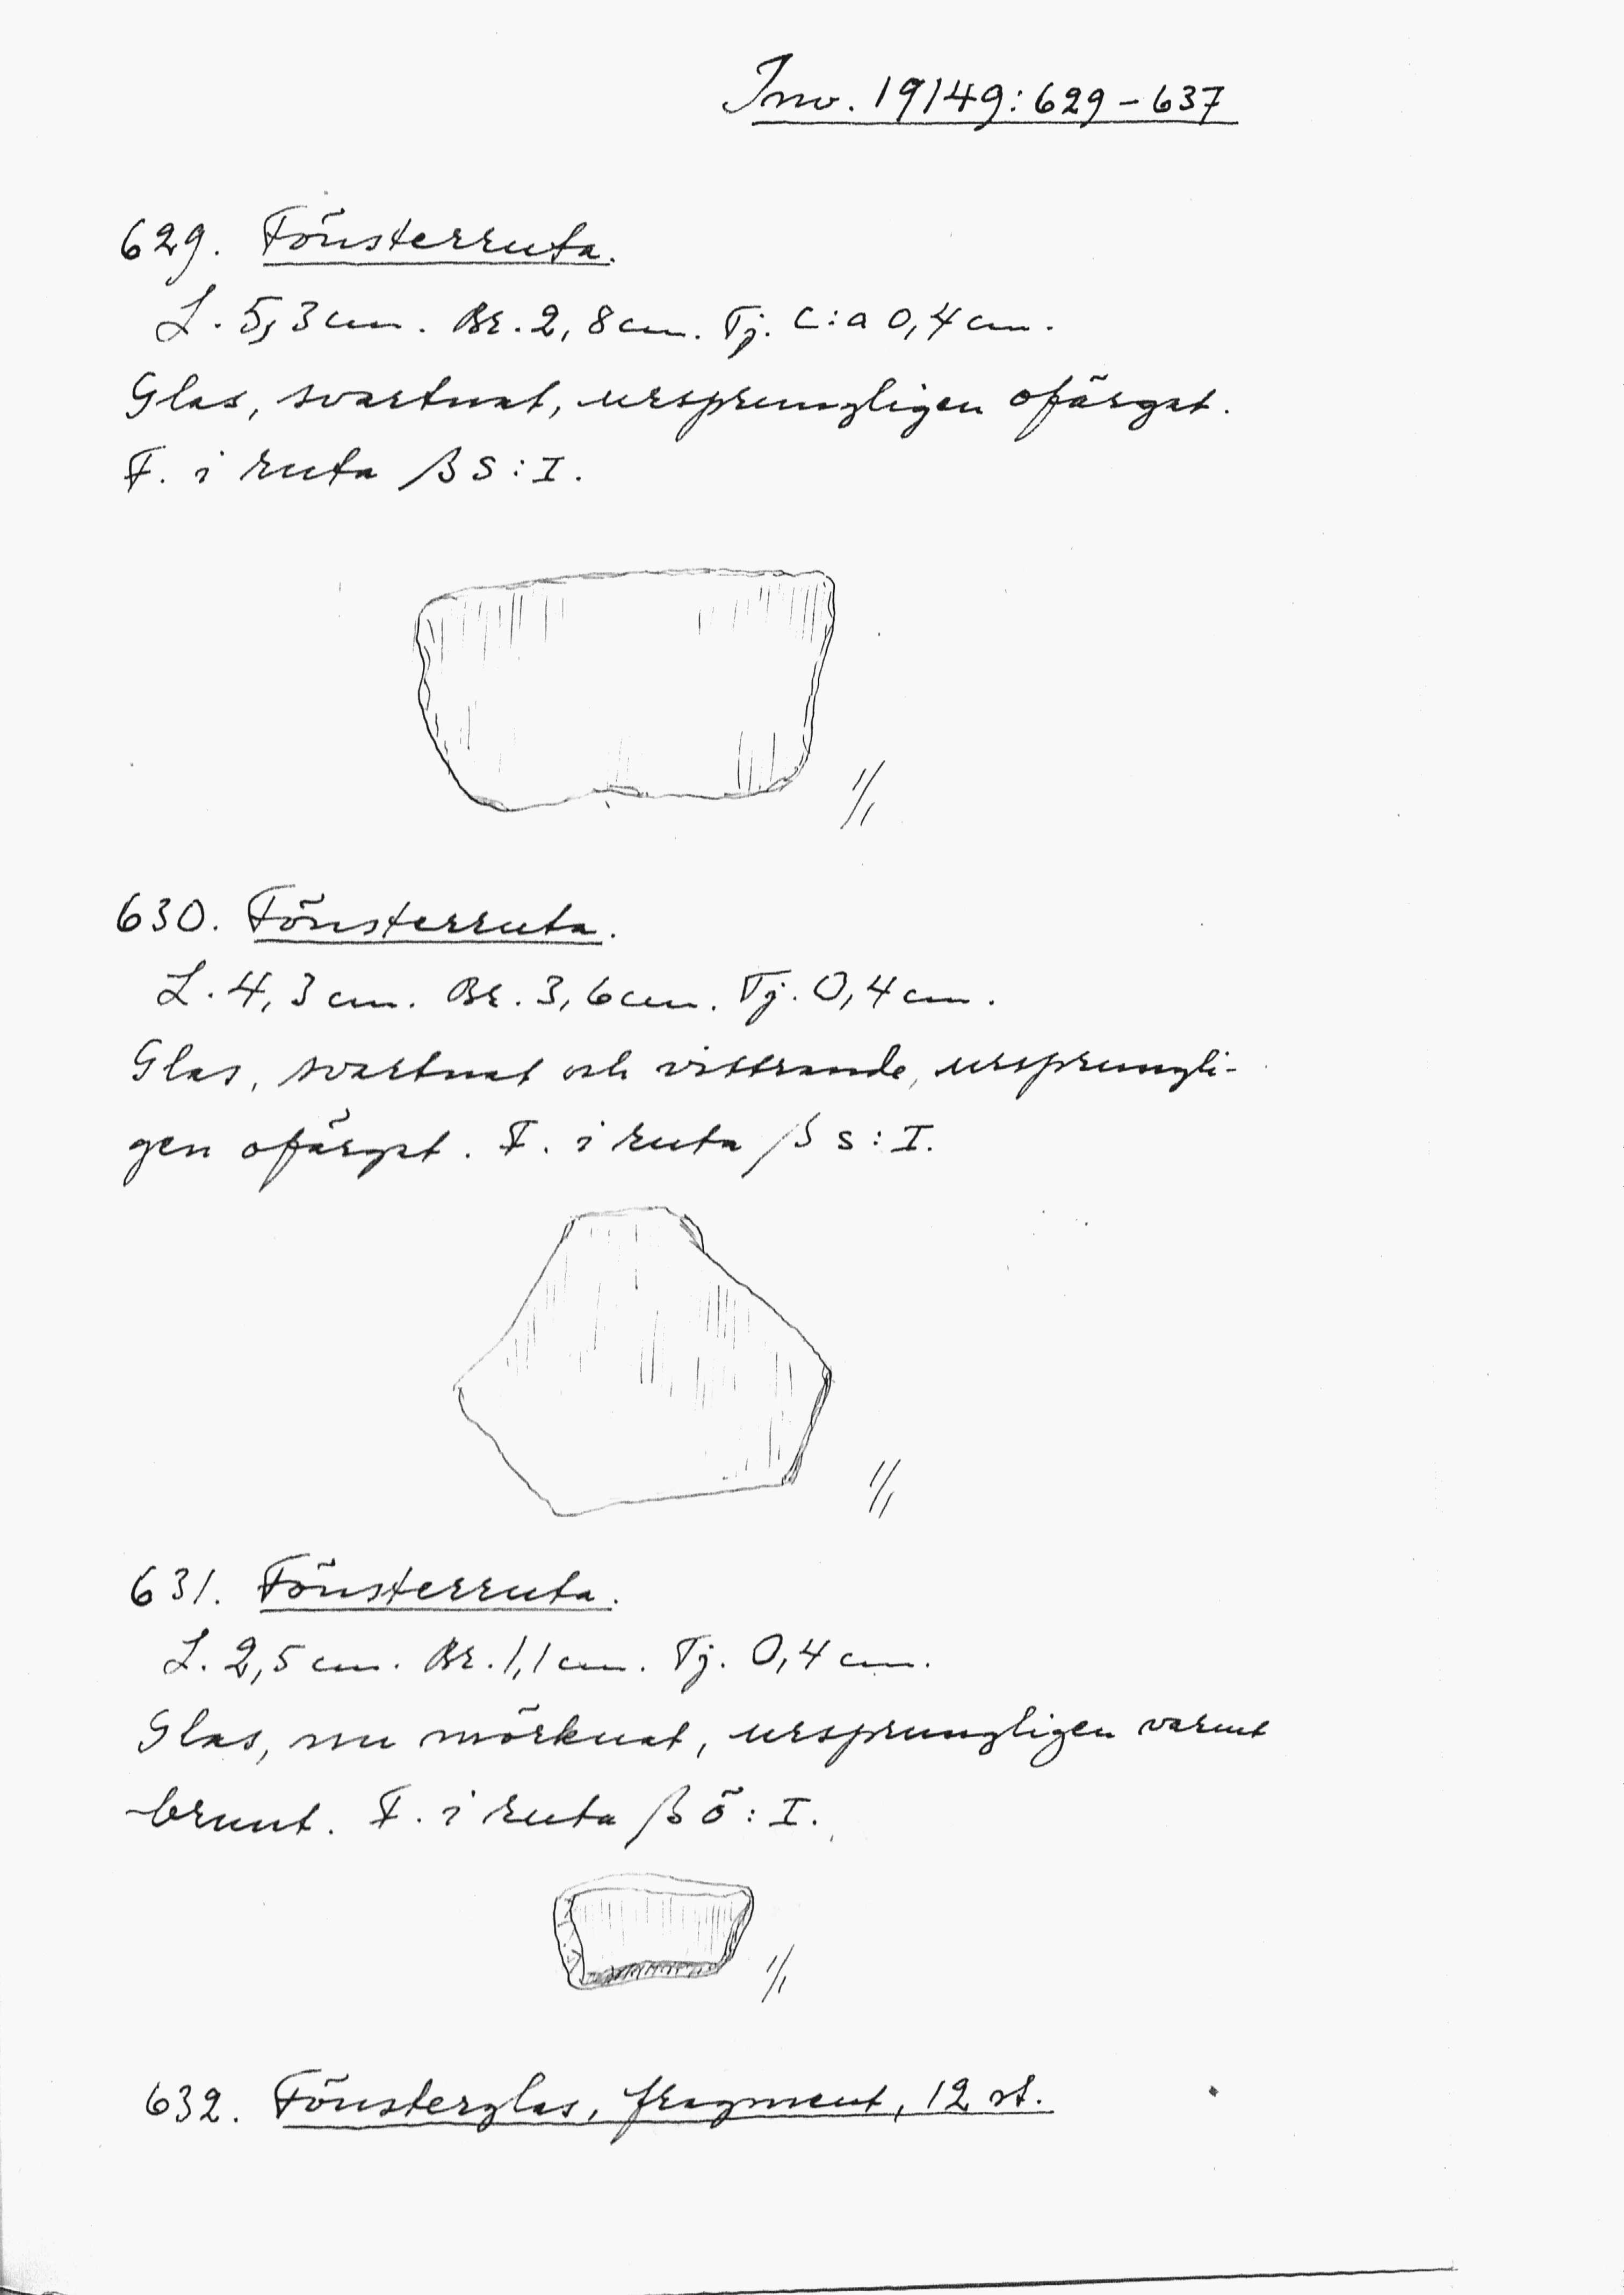 Inv. 19149:629-637
629. Fönsterruta.
L. 5,3 cm. Br. 2,8 cm. Tj. c:a 0,4 cm.
Glas, svartnat, ursprungligen ofärgat.
F. i ruta β S:I.
1/1
630. Fönsterruta.
L. 4,3 cm. Br. 3,6 cm. Tj. 0,4 cm.
Glas, svartnat och vittrande, ursprungli-
gen ofärgat. F. i ruta β S:I.
1/1
631. Fönsterruta.
L. 2,5 cm. Br. 1,1 cm. Tj. 0,4 cm.
Glas, nu mörknat, ursprungligen varmt
brunt. F. i ruta β Ö:I.
1/1
632. Fönsterglas, fragment, 12 st.